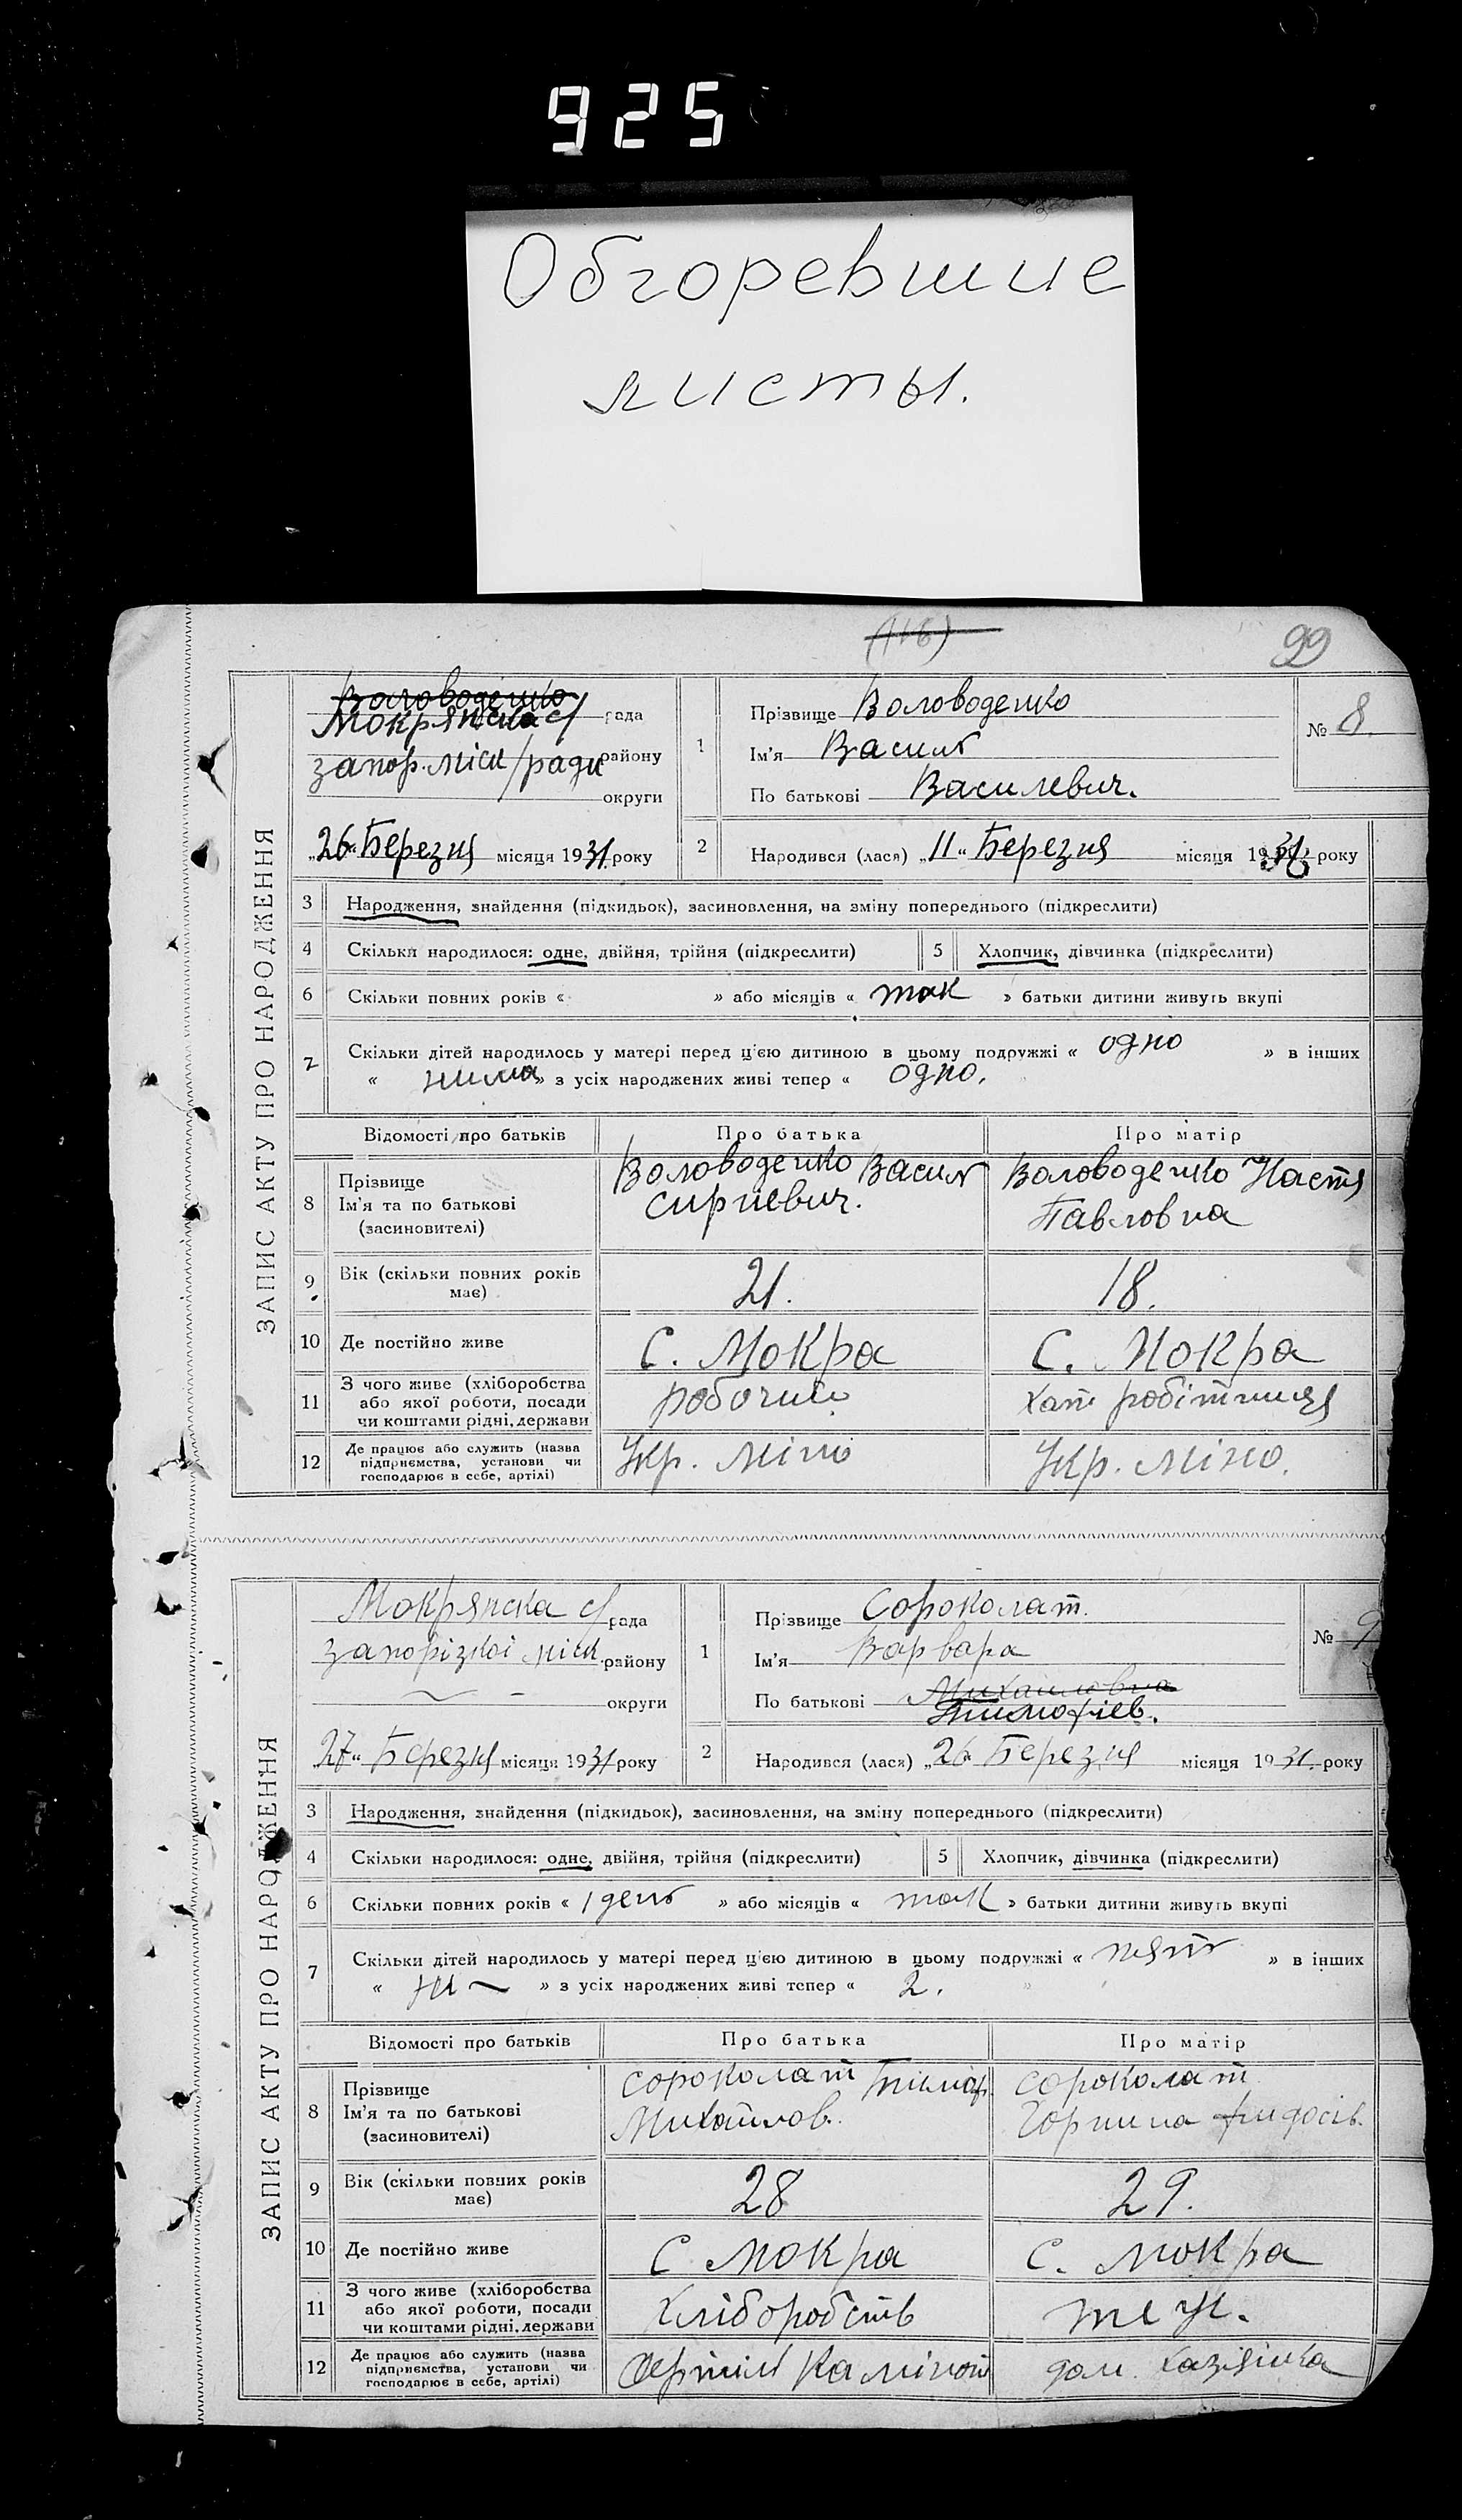 925
Обгоревшие
листы.
(116)
99
ЗАПИС АКТУ ПРО НАРОДЖЕННЯ
Воловоденко
Мокрянска с/ рада
запор. міск/ради району
округи
„26“ Березня місяця 1931 року
1
Прізвище Воловоденко
Ім'я Василь
По батькові Василевич.
№ 8.
2
Народився (лася) „11“ Березня місяця 19 року
3 Народження, знайдення (підкидьок), засиновлення, на зміну попереднього (підкреслити)
4 Скільки народилося: одне, двійня, трійня (підкреслити) 5 Хлопчик, дівчинка (підкреслити)
6 Скільки повних років « » або місяців « так » батьки дитини живуть вкупі
7 Скільки дітей народилось у матері перед ц'єю дитиною в цьому подружжі « одно » в інших
« нима » з усіх народжених живі тепер « одно.
Відомості про батьків Про батька Про матір
8 Прізвище Ім'я та по батькові (засиновителі) Воловоденко Василь Сиргіевич. Воловоденко Настя Павловна
9 Вік (скільки повних років має) 21. 18.
10 Де постійно живе С. Мокра С. Мокра
11 З чого живе (хліборобства або якої роботи, посади чи коштами рідні, держави робочий Хатн робітниця
12 Де працює або служить (назва підприємства, установи чи господарює в себе, артілі) Укр. Укр.
ЗАПИС АКТУ ПРО НАРОДЖЕННЯ
Мокрянска с/ рада
запорізкоі міск. району
округи
„27“ Березня місяця 1931 року
1
Прізвище Сороколат.
Ім'я Варвара
По батькові Михайловна
Тимофіев.
№ 9
2
Народився (лася) „26“ Березня місяця 1931. року
3 Народження, знайдення (підкидьок), засиновлення, на зміну попереднього (підкреслити)
4 Скільки народилося: одне, двійня, трійня (підкреслити) 5 Хлопчик, дівчинка (підкреслити)
6 Скільки повних років « 1 день » або місяців « так » батьки дитини живуть вкупі
7 Скільки дітей народилось у матері перед ц'єю дитиною в цьому подружжі « пять » в інших
« ни » з усіх народжених живі тепер « 2.
Відомості про батьків Про батька Про матір
8 Прізвище Ім'я та по батькові (засиновителі) Сороколат Тимоф. Михайлов. Сороколат Горпина Фидосів.
9 Вік (скільки повних років має) 28 29.
10 Де постійно живе С Мокра С. Мокра
11 З чого живе (хліборобства або якої роботи, посади чи коштами рідні, держави Хліборобств теж.
12 Де працює або служить (назва підприємства, установи чи господарює в себе, артілі) дом. Хазяйка